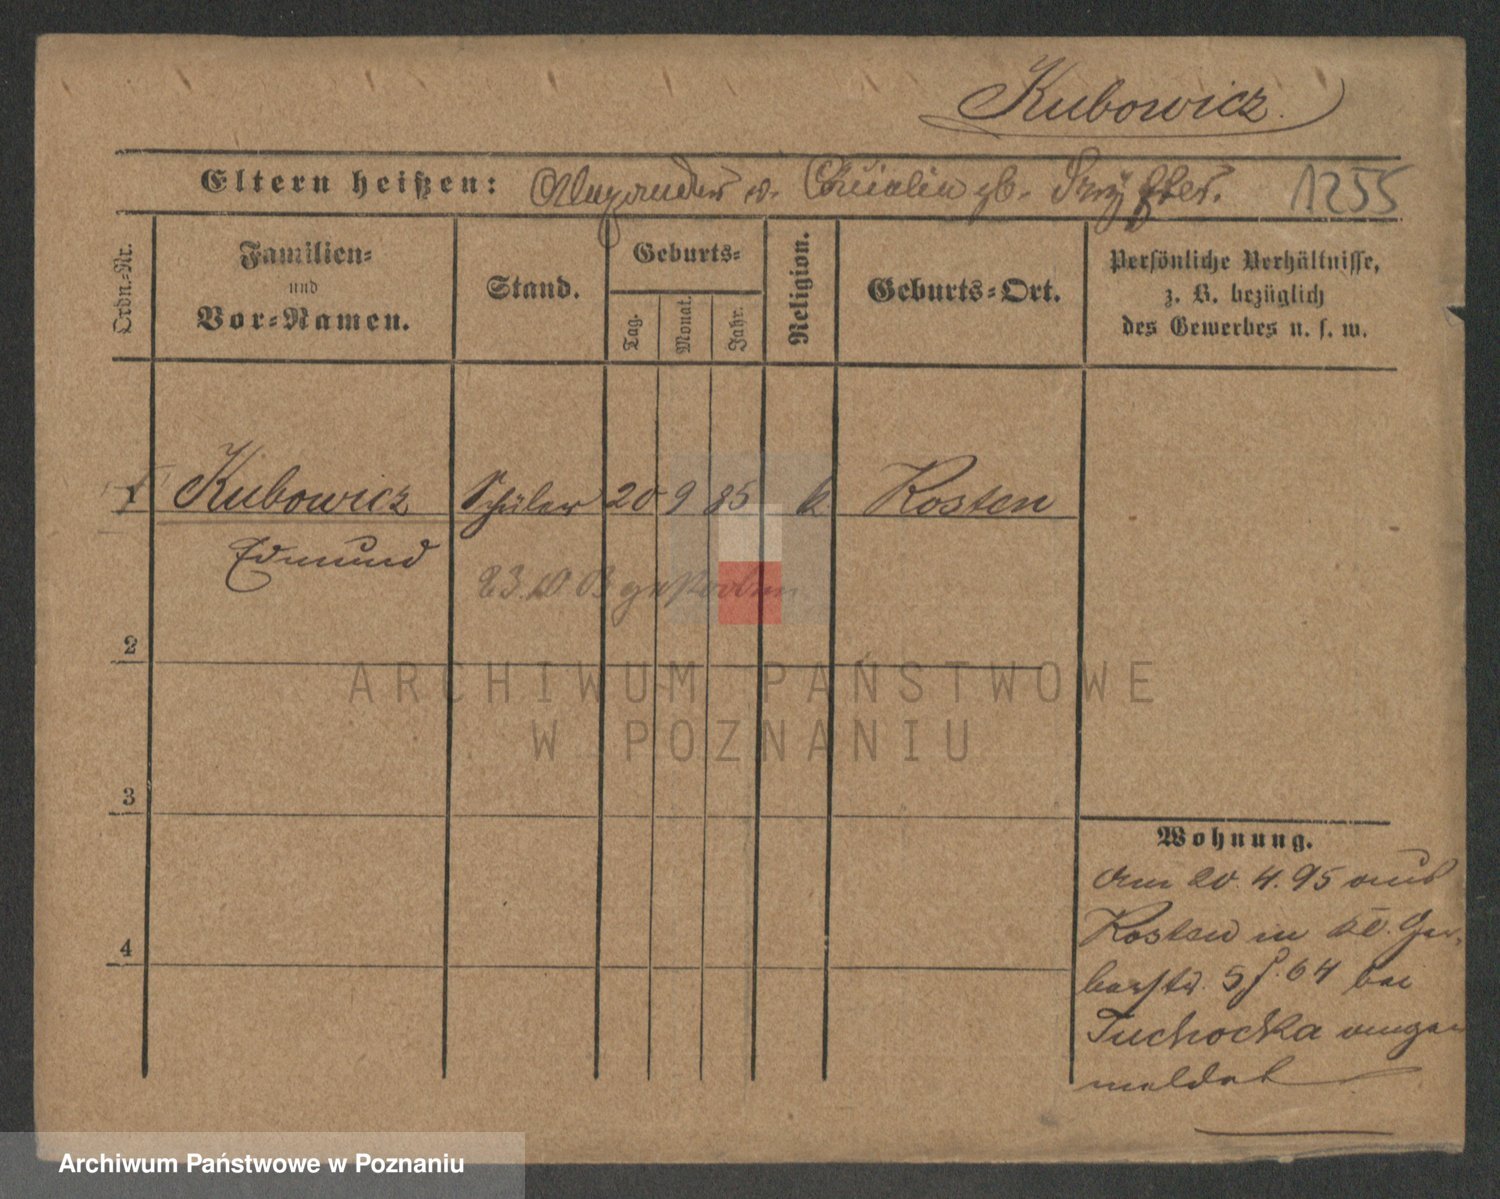 Kubowicz.
Eltern heißen: Alexander u. geb. 1255
Ordn.-Nr.
Familien-
und
Vor-Namen.
Stand.
Geburts-
Tag.
Monat.
Jahr.
Religion.
Geburts-Ort.
Persönliche Verhältnisse,
z. B. bezüglich
des Gewerbes u. s. w.
1 Kubowicz Schüler 20 9 85 k Kosten
Edmund
gestorben
2
ARCHIWUM PAŃSTWOWE
W POZNANIU
3
Wohnung.
Am 20.4.95 aus
Kosten in Kl. Ger-
berstr. 5 64 bei
Tuchocka ange
meldet
4
Archiwum Państwowe w Poznaniu